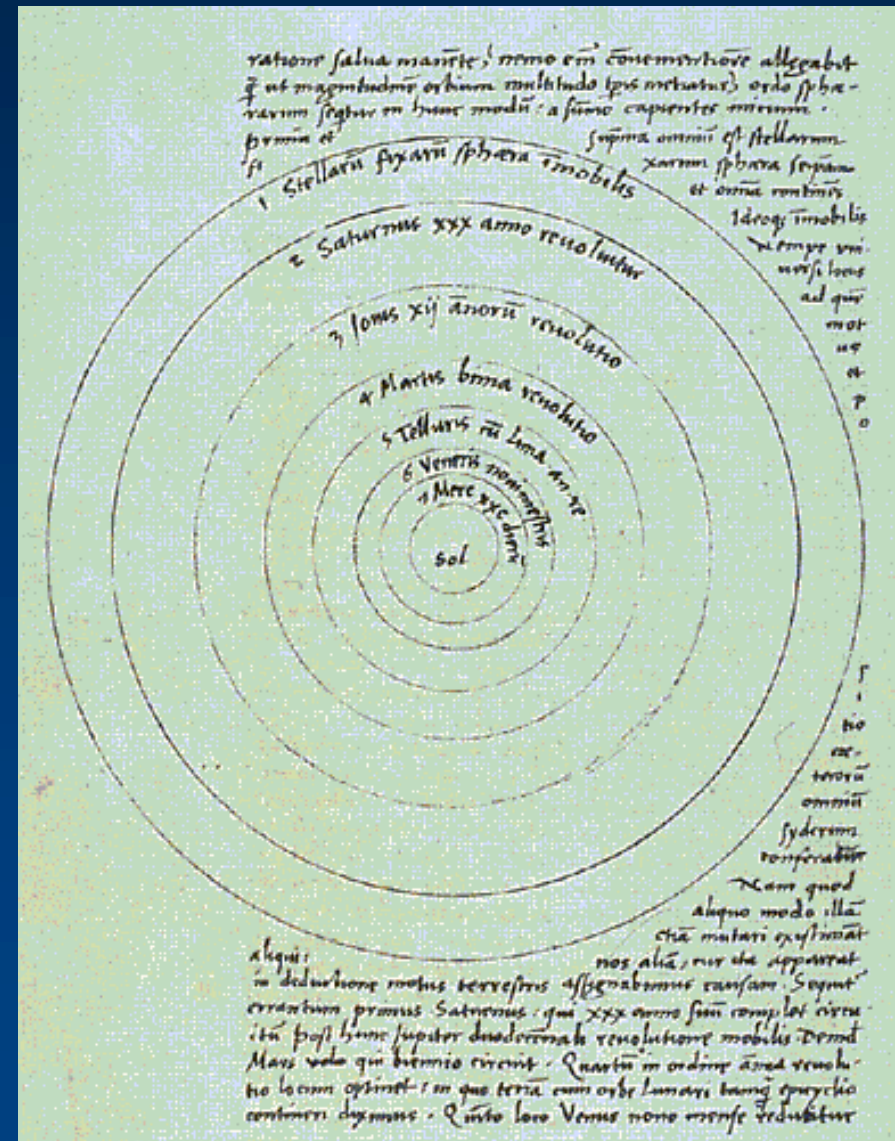 ratione salva manēte, nemo em̄ convenientiorē allegabit
q̄ ut magnitudinē orbium multitudo tp̄is metiatur, ordo sphæ-
rarum seqtur in hunc modū: a sūmo capientes initium.
prima et sup̄ma omniū est stellarum
fi xarum sphæra seip̄am
et omīa continēs
1 Stellarū fixarū sphæra īmobilis
Ideoq; īmobilis
Nempe uni-
versi locus
ad quē
mot
us
et
p
o
2 Saturnus xxx anno revolvitur
3 Jovis xij ānorū revolutio
4 Martis bima revolutio
5 Telluris cū luna an re
6 Veneris nonimestris
7 Merc xxc dierū
Sol
s
i
tio
cæ-
terorū
omniū
syderum
conferatur
Nam quod
aliquo modo illā
etiā mutari existimāt
aliqui: nos aliā, cur ita appareat
in deductione motus terrestris assignabimus causam. Sequit̄
errantium primus Saturnus: qui xxx anno suū complet circu-
itū post hunc Jupiter duodecennali revolutione mobilis Deind
Mars volo qui biennio circuit. Quartū in ordine ānua revolu-
tio locum optinet: in quo terrā cum orbe Lunari tamq̄ epicyclio
contineri diximus. Quinto loco Venus nono mense reducitur